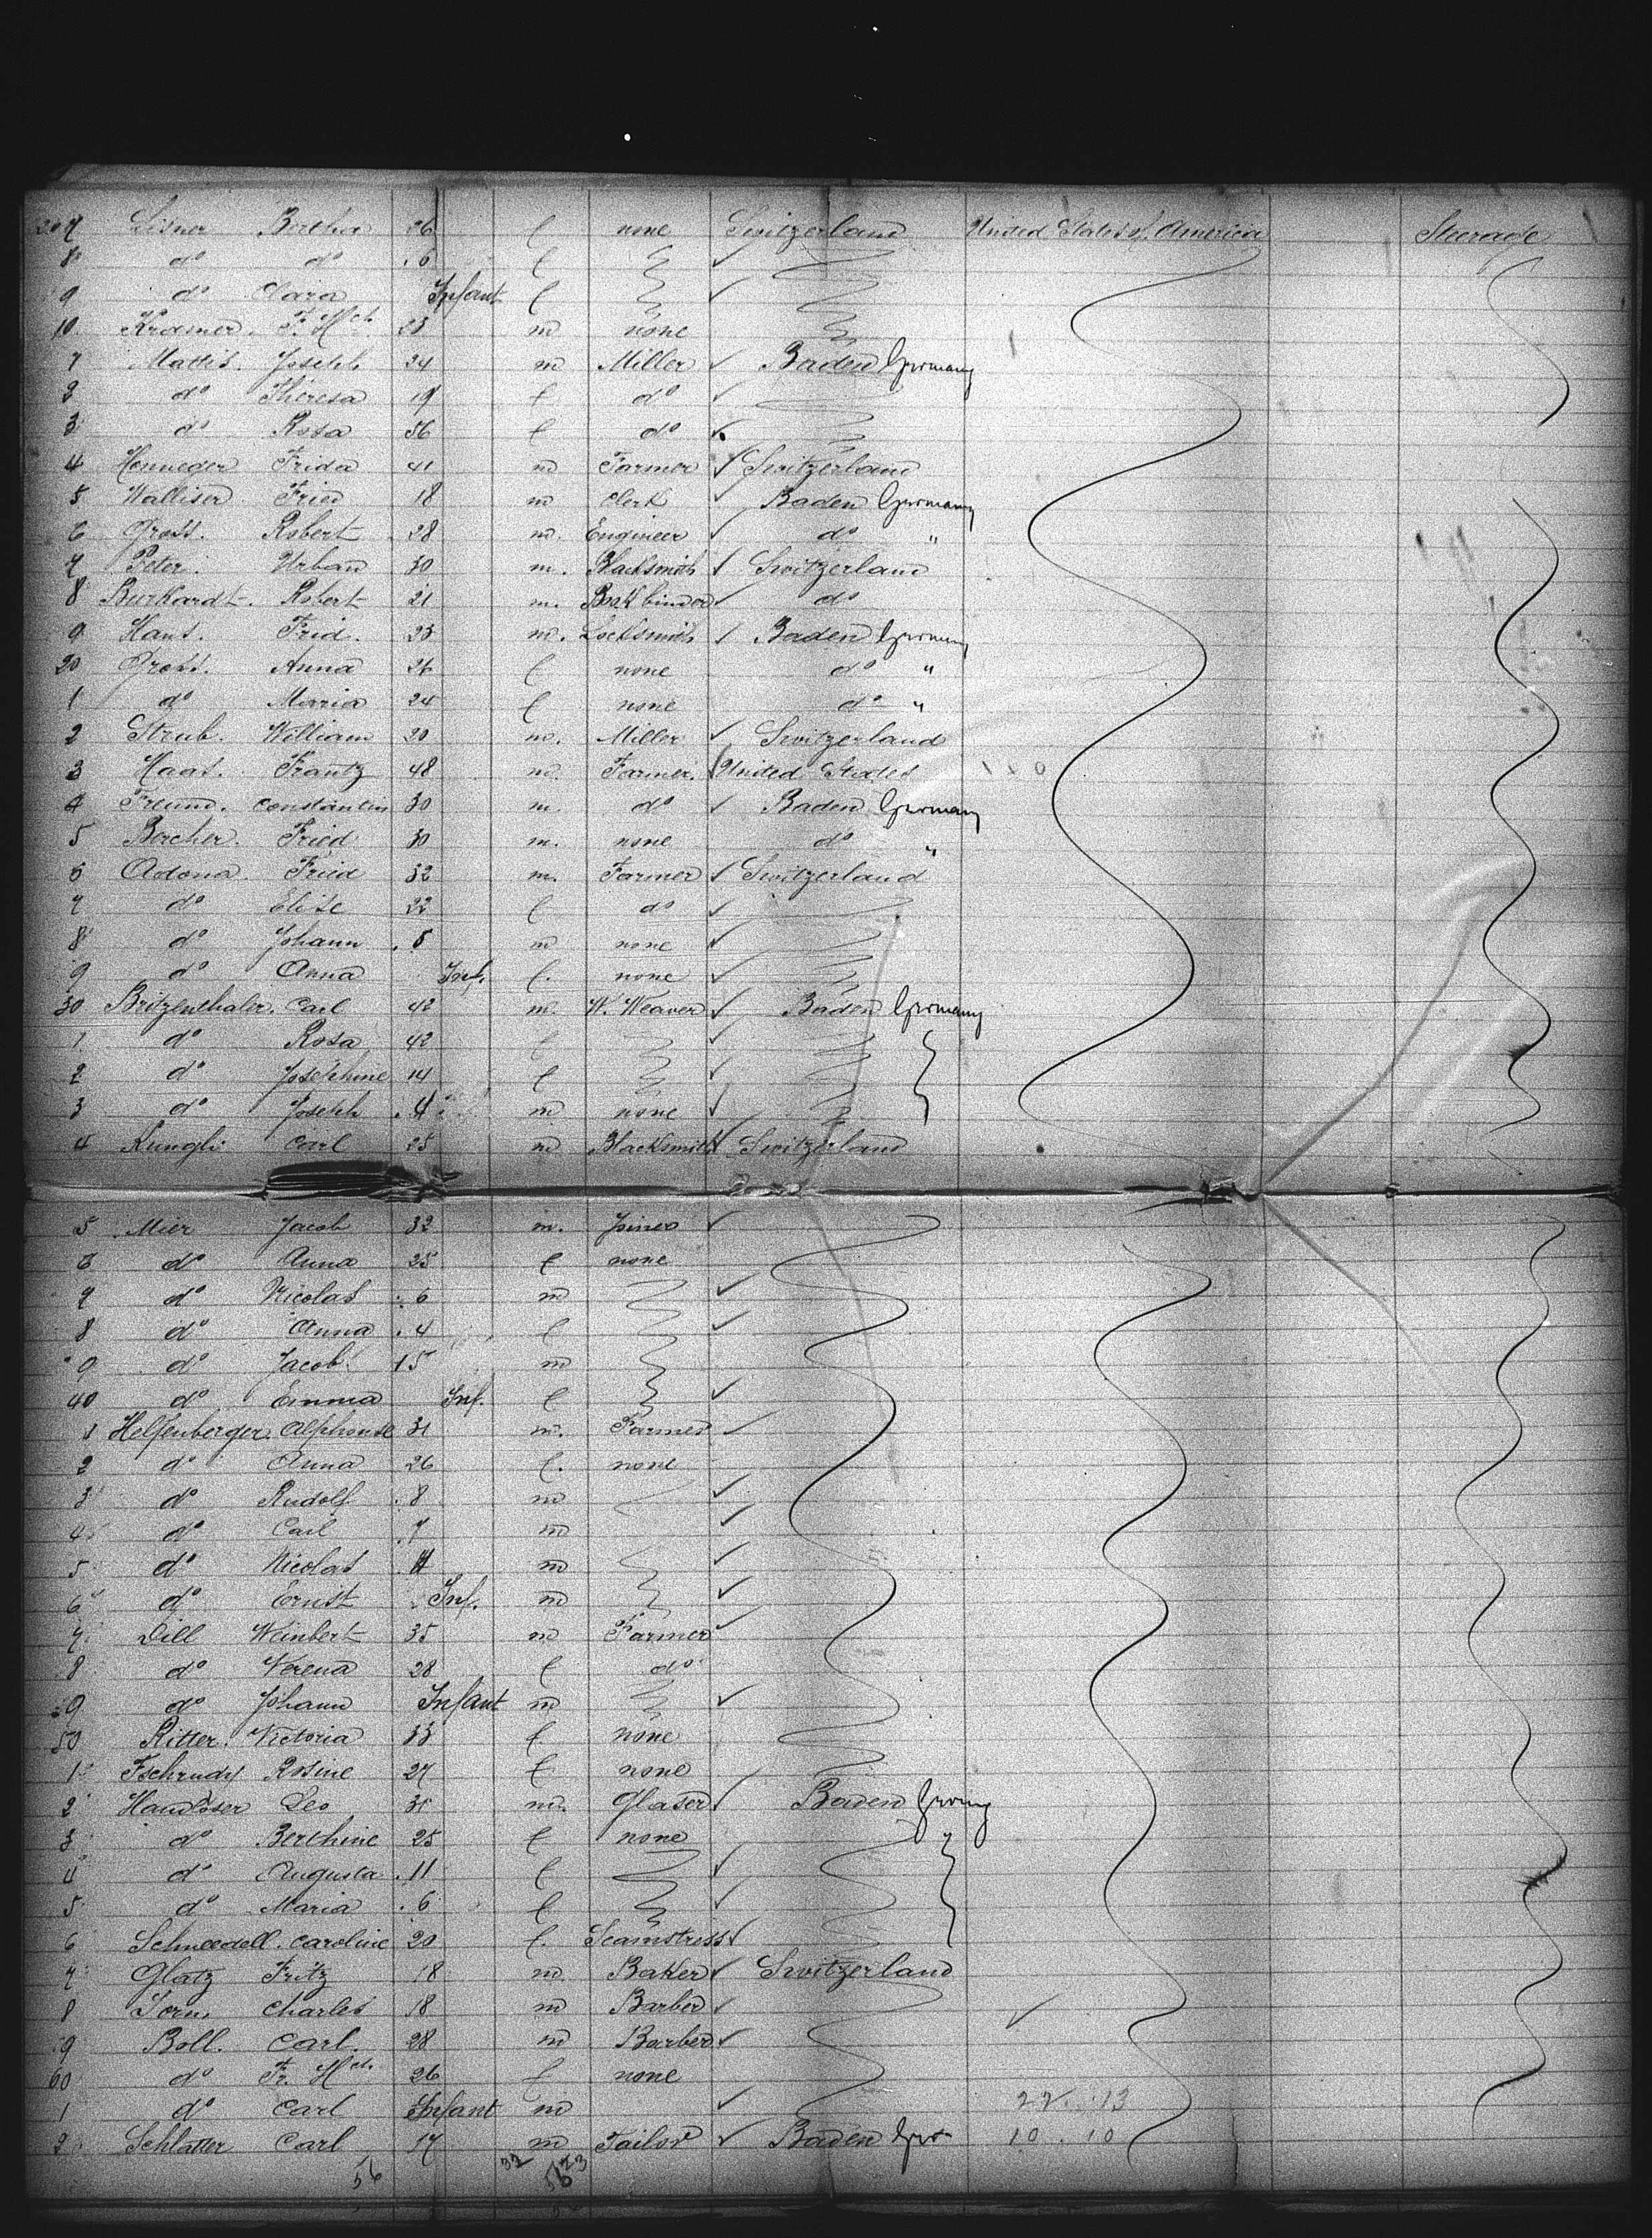 207 Lisner Bertha 26 f none Switzerland United States of America Steerage
8 do do 6 f
9 do Clara Infant f
10 Kramer F. Hch 23 m none
1 Mattis Joseph 24 m Miller Baden Germany
2 do Theresa 19 f do
3 do Rosa 56 f do
4 Honneger Frida 41 m Farmer Switzerland
5 Walliser Fried 18 m Clerk Baden Germany
6 Gross. Robert 28 m. Engineer do "
7 Peter. Urban 30 m. Blacksmith Switzerland
8 Burkardt. Robert 21 m. Bookbinder do
9 Hans. Frid. 23 m. Locksmith Baden Germany
20 Gross. Anna 26 f none do "
1 do Maria 24 f none do "
2 Strub. William 20 m. Miller Switzerland
3 Haas. Frantz 48 m. Farmer. United States
4 Freund. Constantin 30 m. do Baden Germany
5 Bercher. Fried 30 m. none do "
6 Adona Fried 32 m. Farmer Switzerland
7 do Elise 22 f do
8 do Johann 5 m none
9 do Anna Inf. f. none
30 Britzenthaler. Carl 42 m. W. Weaver Baden Germany
1 do Rosa 42 f
2 do Josephine 14 f
3 do Joseph 4 m none
4 Kungli Carl 25 m Blacksmith Switzerland
5 Mier Jacob 32 m. Joiner
6 do Anna 25 f none
7 do Nicolas 6 m
8 do Anna 4 f
9 do Jacob 15 m
40 do Emma Inf. f
1 Helfenberger. Alphonse 31 m. Farmer
2 do Anna 26 f. none
3 do Rudolf. 8 m
4 do Carl 7 m
5 do Nicolas 4 m
6 do Ernst Inf. m
7 Dill Weinbert 35 m Farmer
8 do Verena 28 f do
9 do Johann Infant m
50 Ritter. Victoria 33 f none
1 Tschrudy Rosine 27 f none
2 Handloser Leo 31 m. Glaser Baden Germy
3 do Berthine 25 f none
4 do Augusta 11 f
5 do Maria 6 f
6 Schneedell. Caroline 20 f. Seamstress
7 Glatz Fritz 18 m. Baker Switzerland
8 Charles 18 m Barber
9 Boll. Carl. 28 m Barber
60 do Fr. Hch. 26 f none
1 do Carl Infant m 22 . 13
2 Schlatter Carl 17 m Tailor Baden Ger 10 . 10
56 32